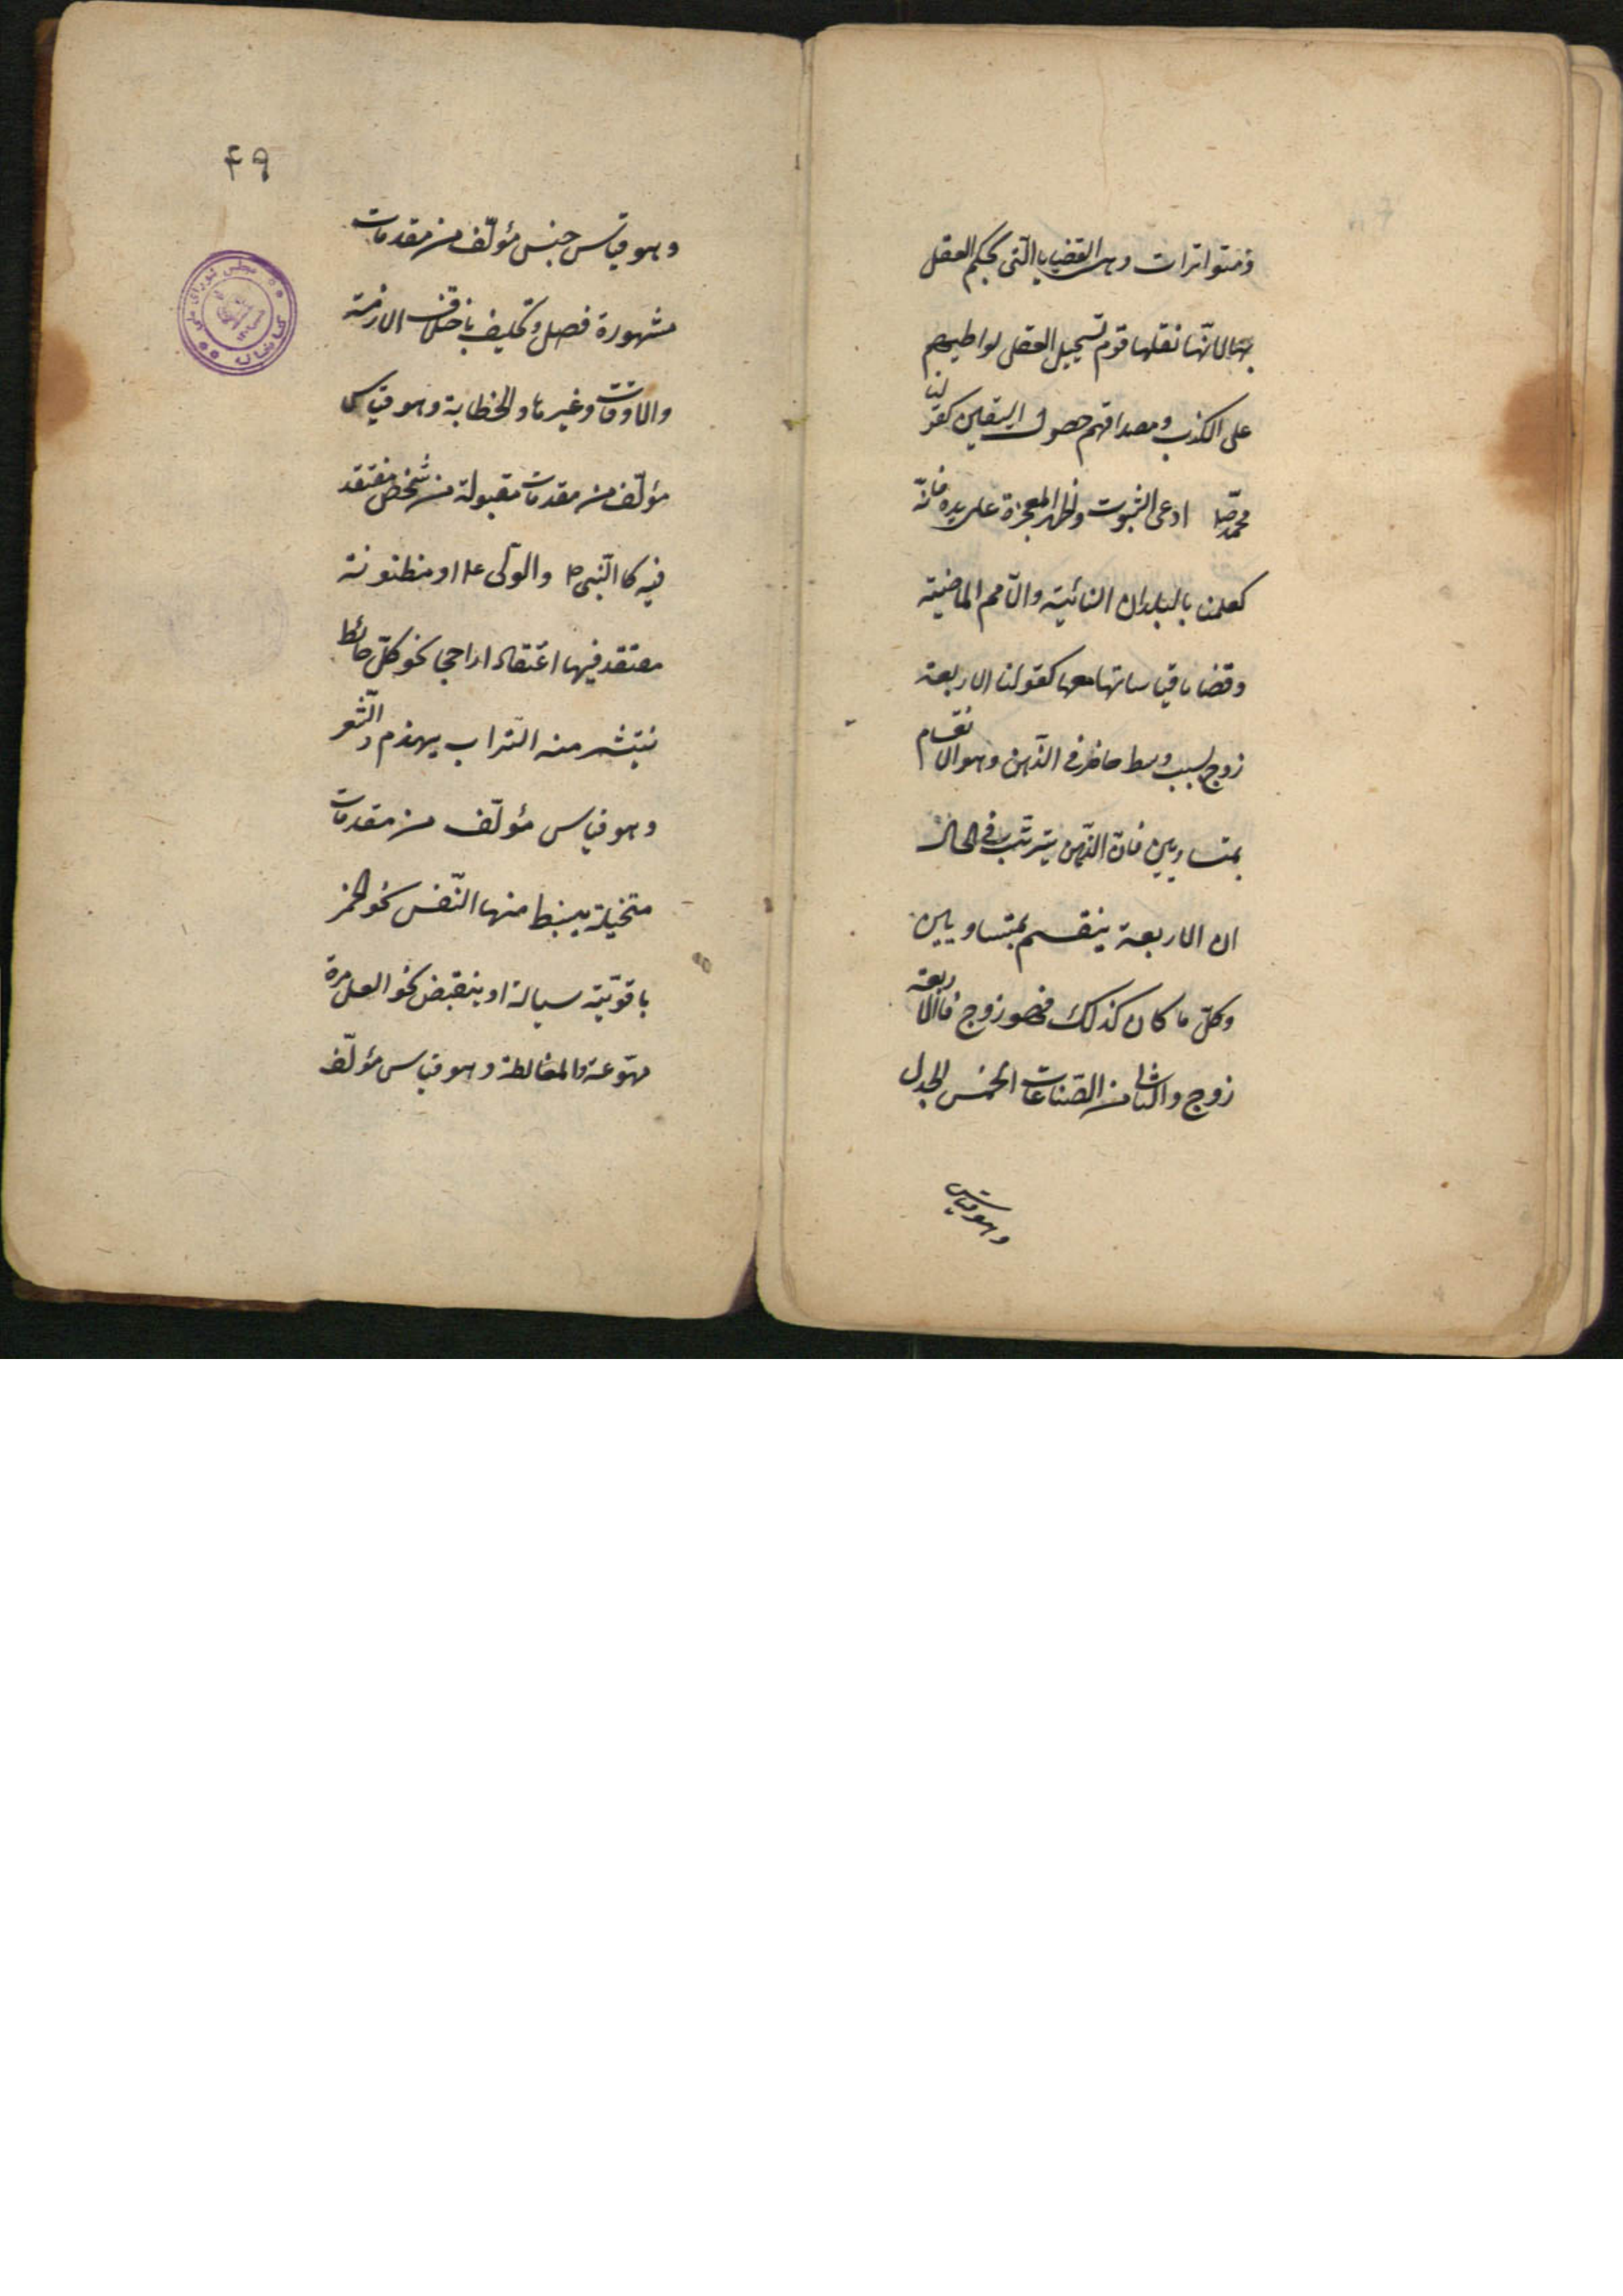 ومتواترات وهى القضايا الّتى يحكم العقل
بها لانّها نقلها قوم تستحيل العقل تواطيهم
على الكذب ومصداقهم حصول اليقين كقولنا
محمّد ص ادعى النبوت وظهر المعجزة على يده فانّه
كعلمنا بالبلدان النائية والامم الماضية
وقضايا قياساتها معها كقولنا الاربعة
زوج بسبب وسط حاضر فى الذّهن وهو الانقسام
بمتساويين فانّ الذّهن يترتّب فى الحال
ان الاربعة ينقسم بمتساويين
وكلّ ما كان كذلك فهو زوج فالاربعة
زوج والثانى من الصّناعات الخمس الجدل
وهو قياس
۴۹
وهو قياس جنس مؤلّف من مقدمات
مشهورة فصل وتختلف باختلاف الازمنة
والاوقات وغيرها والخطابة وهو قياس
مؤلّف من مقدمات مقبولة من شخص معتقد
فيه كالنّبى ص والولى ع او مظنونة
معتقد فيها اعتقادا راجحا نحو كلّ حائط
ينتشر منه التّراب يهدم والشّعر
وهو قياس مؤلّف من مقدمات
متخيلة ينبسط منها النّفس نحو الخمر
ياقوتيّة سيالة او ينقبض نحو العسل مرة
مهوعة والمغالطة وهو قياس مؤلّف
كتابخانه مجلس شوراى ملى